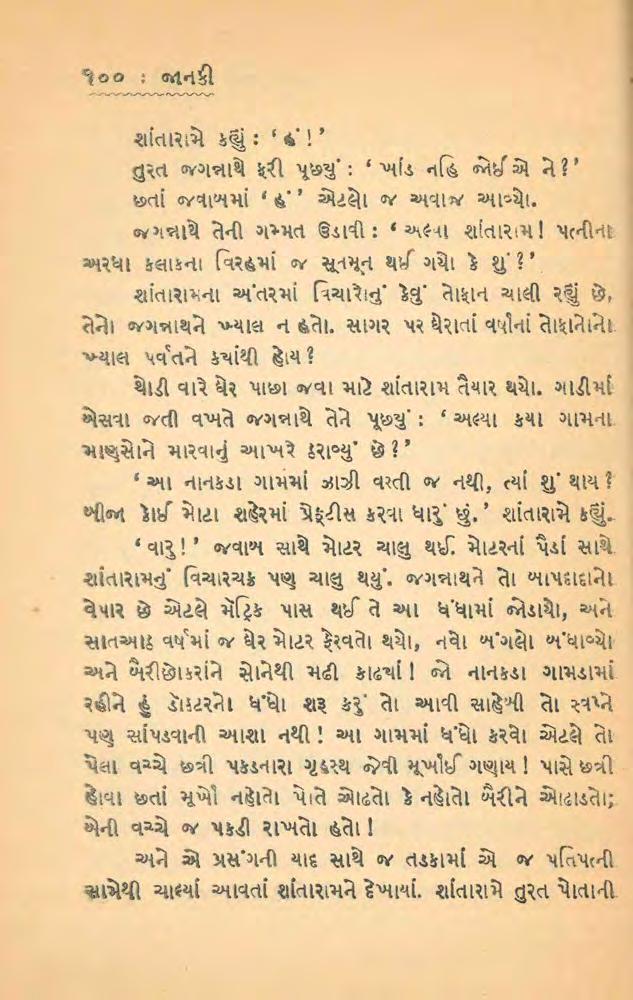 ૧૦૦ : જાનકી
શાંતારામે કહ્યું : ‘ હં !’
તુરત જગન્નાથે ફરી પૂછ્યું : ‘ ખાંડ નહિ જોઈએ ને ?’
છતાં જવાબમાં ‘ હં ’ એટલો જ અવાજ આવ્યો.
જગન્નાથે તેની ગમ્મત ઉડાવી : ‘ અલ્યા શાંતારામ ! પત્નીના
અરધા કલાકના વિરહમાં જ સૂનમૂન થઈ ગયો કે શું ?’
શાંતારામના અંતરમાં વિચારોનું કેવું તોફાન ચાલી રહ્યું છે,
તેનો જગન્નાથને ખ્યાલ ન હતો. સાગર પર ઘેરાતાં વર્ષાનાં તોફાનોનો
ખ્યાલ પર્વતને ક્યાંથી હોય ?
થોડી વારે ઘેર પાછા જવા માટે શાંતારામ તૈયાર થયો. ગાડીમાં
બેસવા જતી વખતે જગન્નાથે તેને પૂછ્યું : ‘ અલ્યા કયા ગામના
માણસોને મારવાનું આખરે ઠરાવ્યું છે ?’
‘ આ નાનકડા ગામમાં ઝાઝી વસ્તી જ નથી, ત્યાં શું થાય ?
બીજા કોઈ મોટા શહેરમાં પ્રેક્ટીસ કરવા ધારું છું.’ શાંતારામે કહ્યું.
‘ વારુ !’ જવાબ સાથે મોટર ચાલુ થઈ. મોટરનાં પૈડાં સાથે
શાંતારામનું વિચારચક્ર પણ ચાલુ થયું. જગન્નાથને તો બાપદાદાનો
વેપાર છે એટલે મૅટ્રિક પાસ થઈ તે આ ધંધામાં જોડાયો, અને
સાતઆઠ વર્ષમાં જ ઘેર મોટર ફેરવતો થયો, નવો બંગલો બંધાવ્યો
અને બૈરીછોકરાંને સોનેથી મઢી કાઢ્યાં ! જો નાનકડા ગામડામાં
રહીને હું ડૉક્ટરનો ધંધો શરૂ કરું તો આવી સાહેબી તો સ્વપ્ને
પણ સાંપડવાની આશા નથી ! આ ગામમાં ધંધો કરવો એટલે તો
પેલા વચ્ચે છત્રી પકડનારા ગૃહસ્થ જેવી મૂર્ખાઈ ગણાય ! પાસે છત્રી
હોવા છતાં મૂર્ખો નહોતો પોતે ઓઢતો કે નહોતો બૈરીને ઓઢાડતો;
બેની વચ્ચે જ પકડી રાખતો હતો !
અને એ પ્રસંગની યાદ સાથે જ તડકામાં એ જ પતિપત્ની
સામેથી ચાલ્યાં આવતાં શાંતારામને દેખાયાં. શાંતારામે તુરત પોતાની